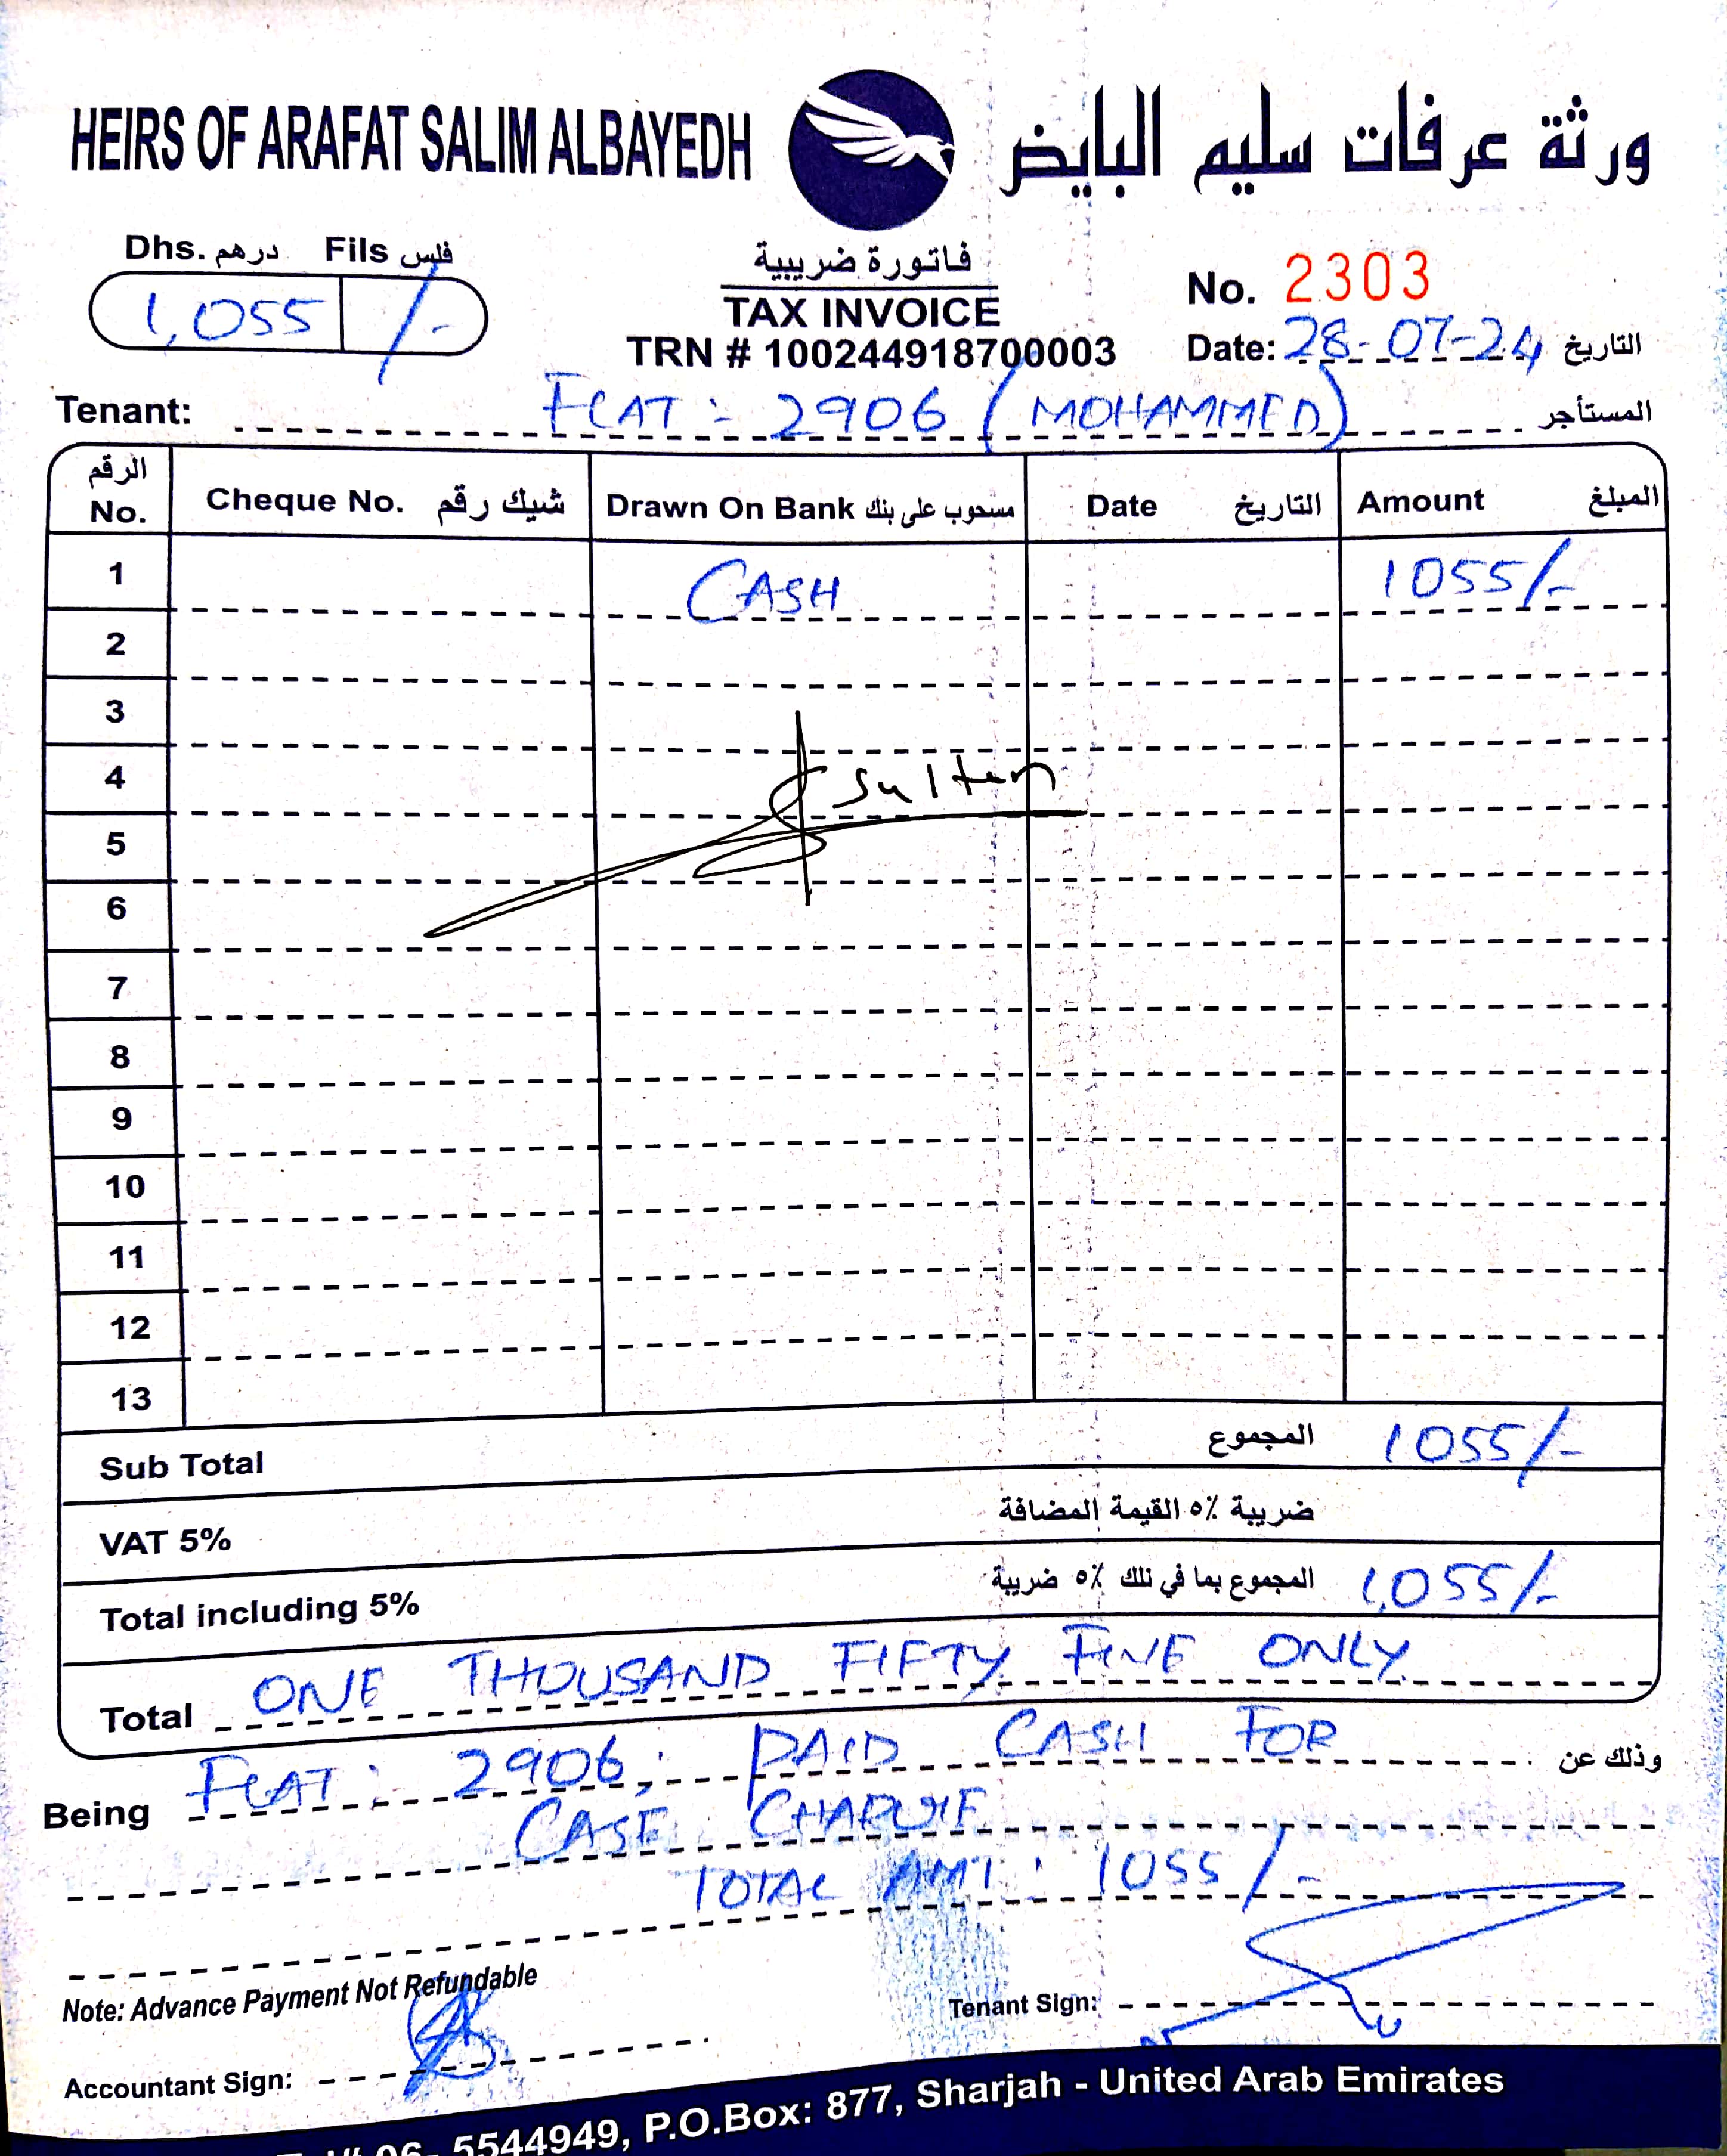 HEIRS OF ARAFAT SALIM ALBAYEDH ورثة عرفات سليم البايض
Dhs. درهم Fils فلس
1,055 /-
فاتورة ضريبية
TAX INVOICE
TRN # 100244918700003
No. 2303
Date: 28-07-24 التاريخ
Tenant: FLAT : 2906 (MOHAMMED) المستأجر
الرقم No. Cheque No. شيك رقم Drawn On Bank مسحوب على بنك Date التاريخ Amount المبلغ
1 CASH 1055/-
2
3
4 Sultan
5
6
7
8
9
10
11
12
13
Sub Total المجموع 1055/-
VAT 5% ضريبة ٥٪ القيمة المضافة
Total including 5% المجموع بما في تلك ٥٪ ضريبة 1,055/-
Total ONE THOUSAND FIFTY FIVE ONLY
Being FLAT : 2906, PAID CASH FOR وذلك عن
CASE CHARGE
TOTAL AMT : 1055/-
Note: Advance Payment Not Refundable
Tenant Sign:
Accountant Sign:
06- 5544949, P.O.Box: 877, Sharjah - United Arab Emirates